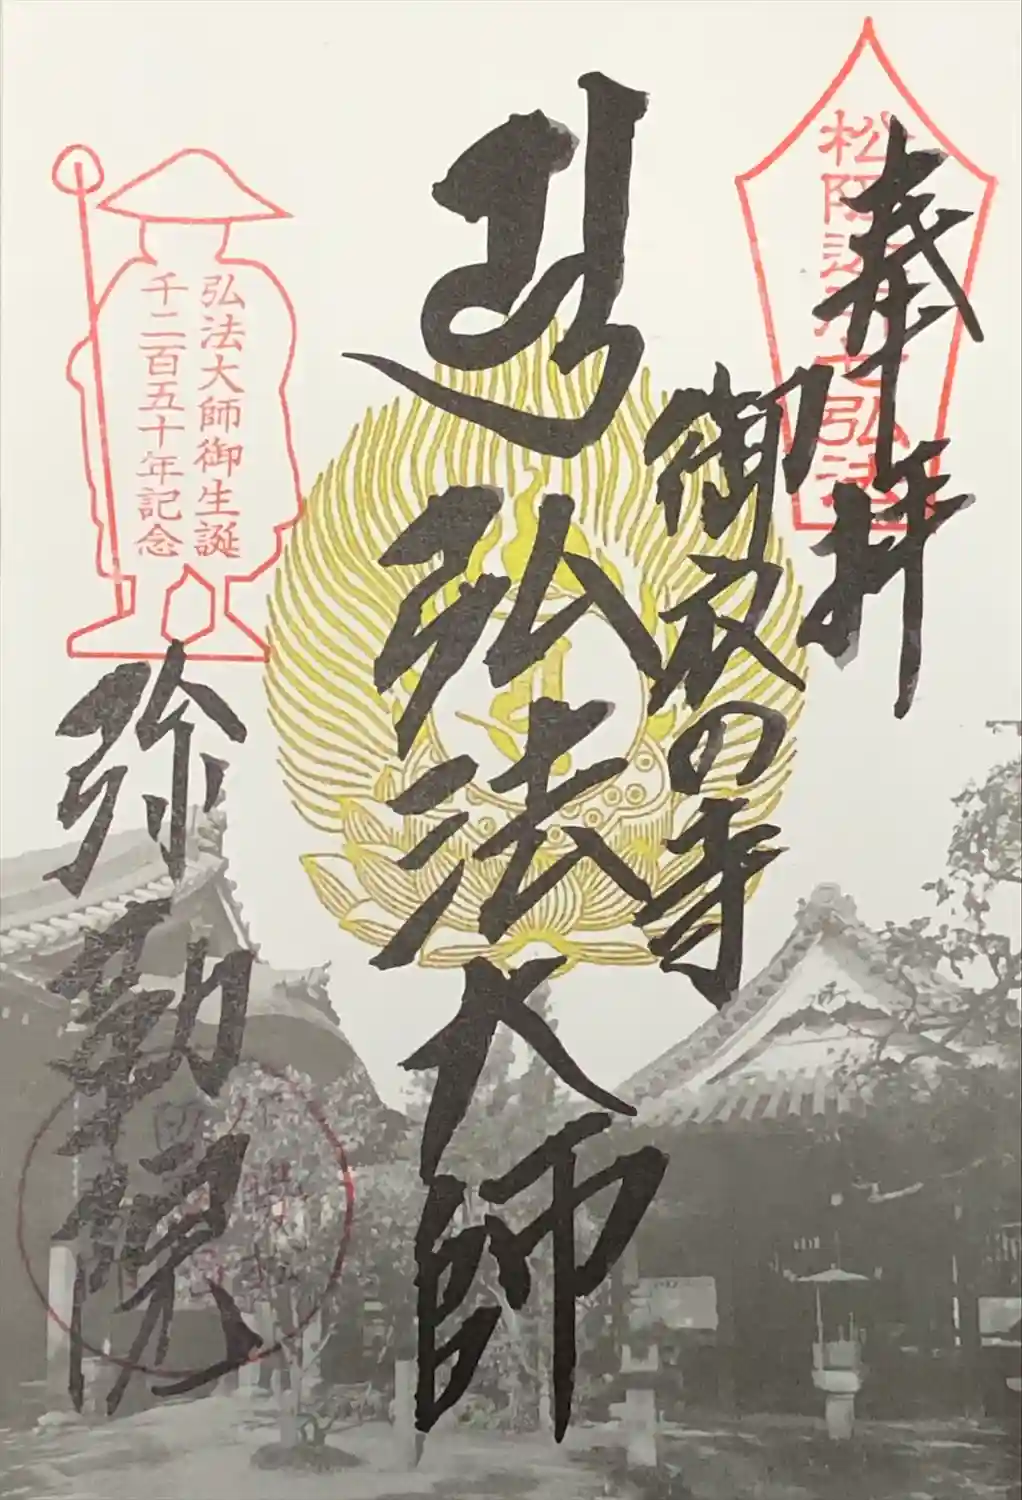 奉拝
松阪近郊七弘法
御衣の寺
弘法大師
弘法大師御生誕
千二百五十年記念
弥勒院